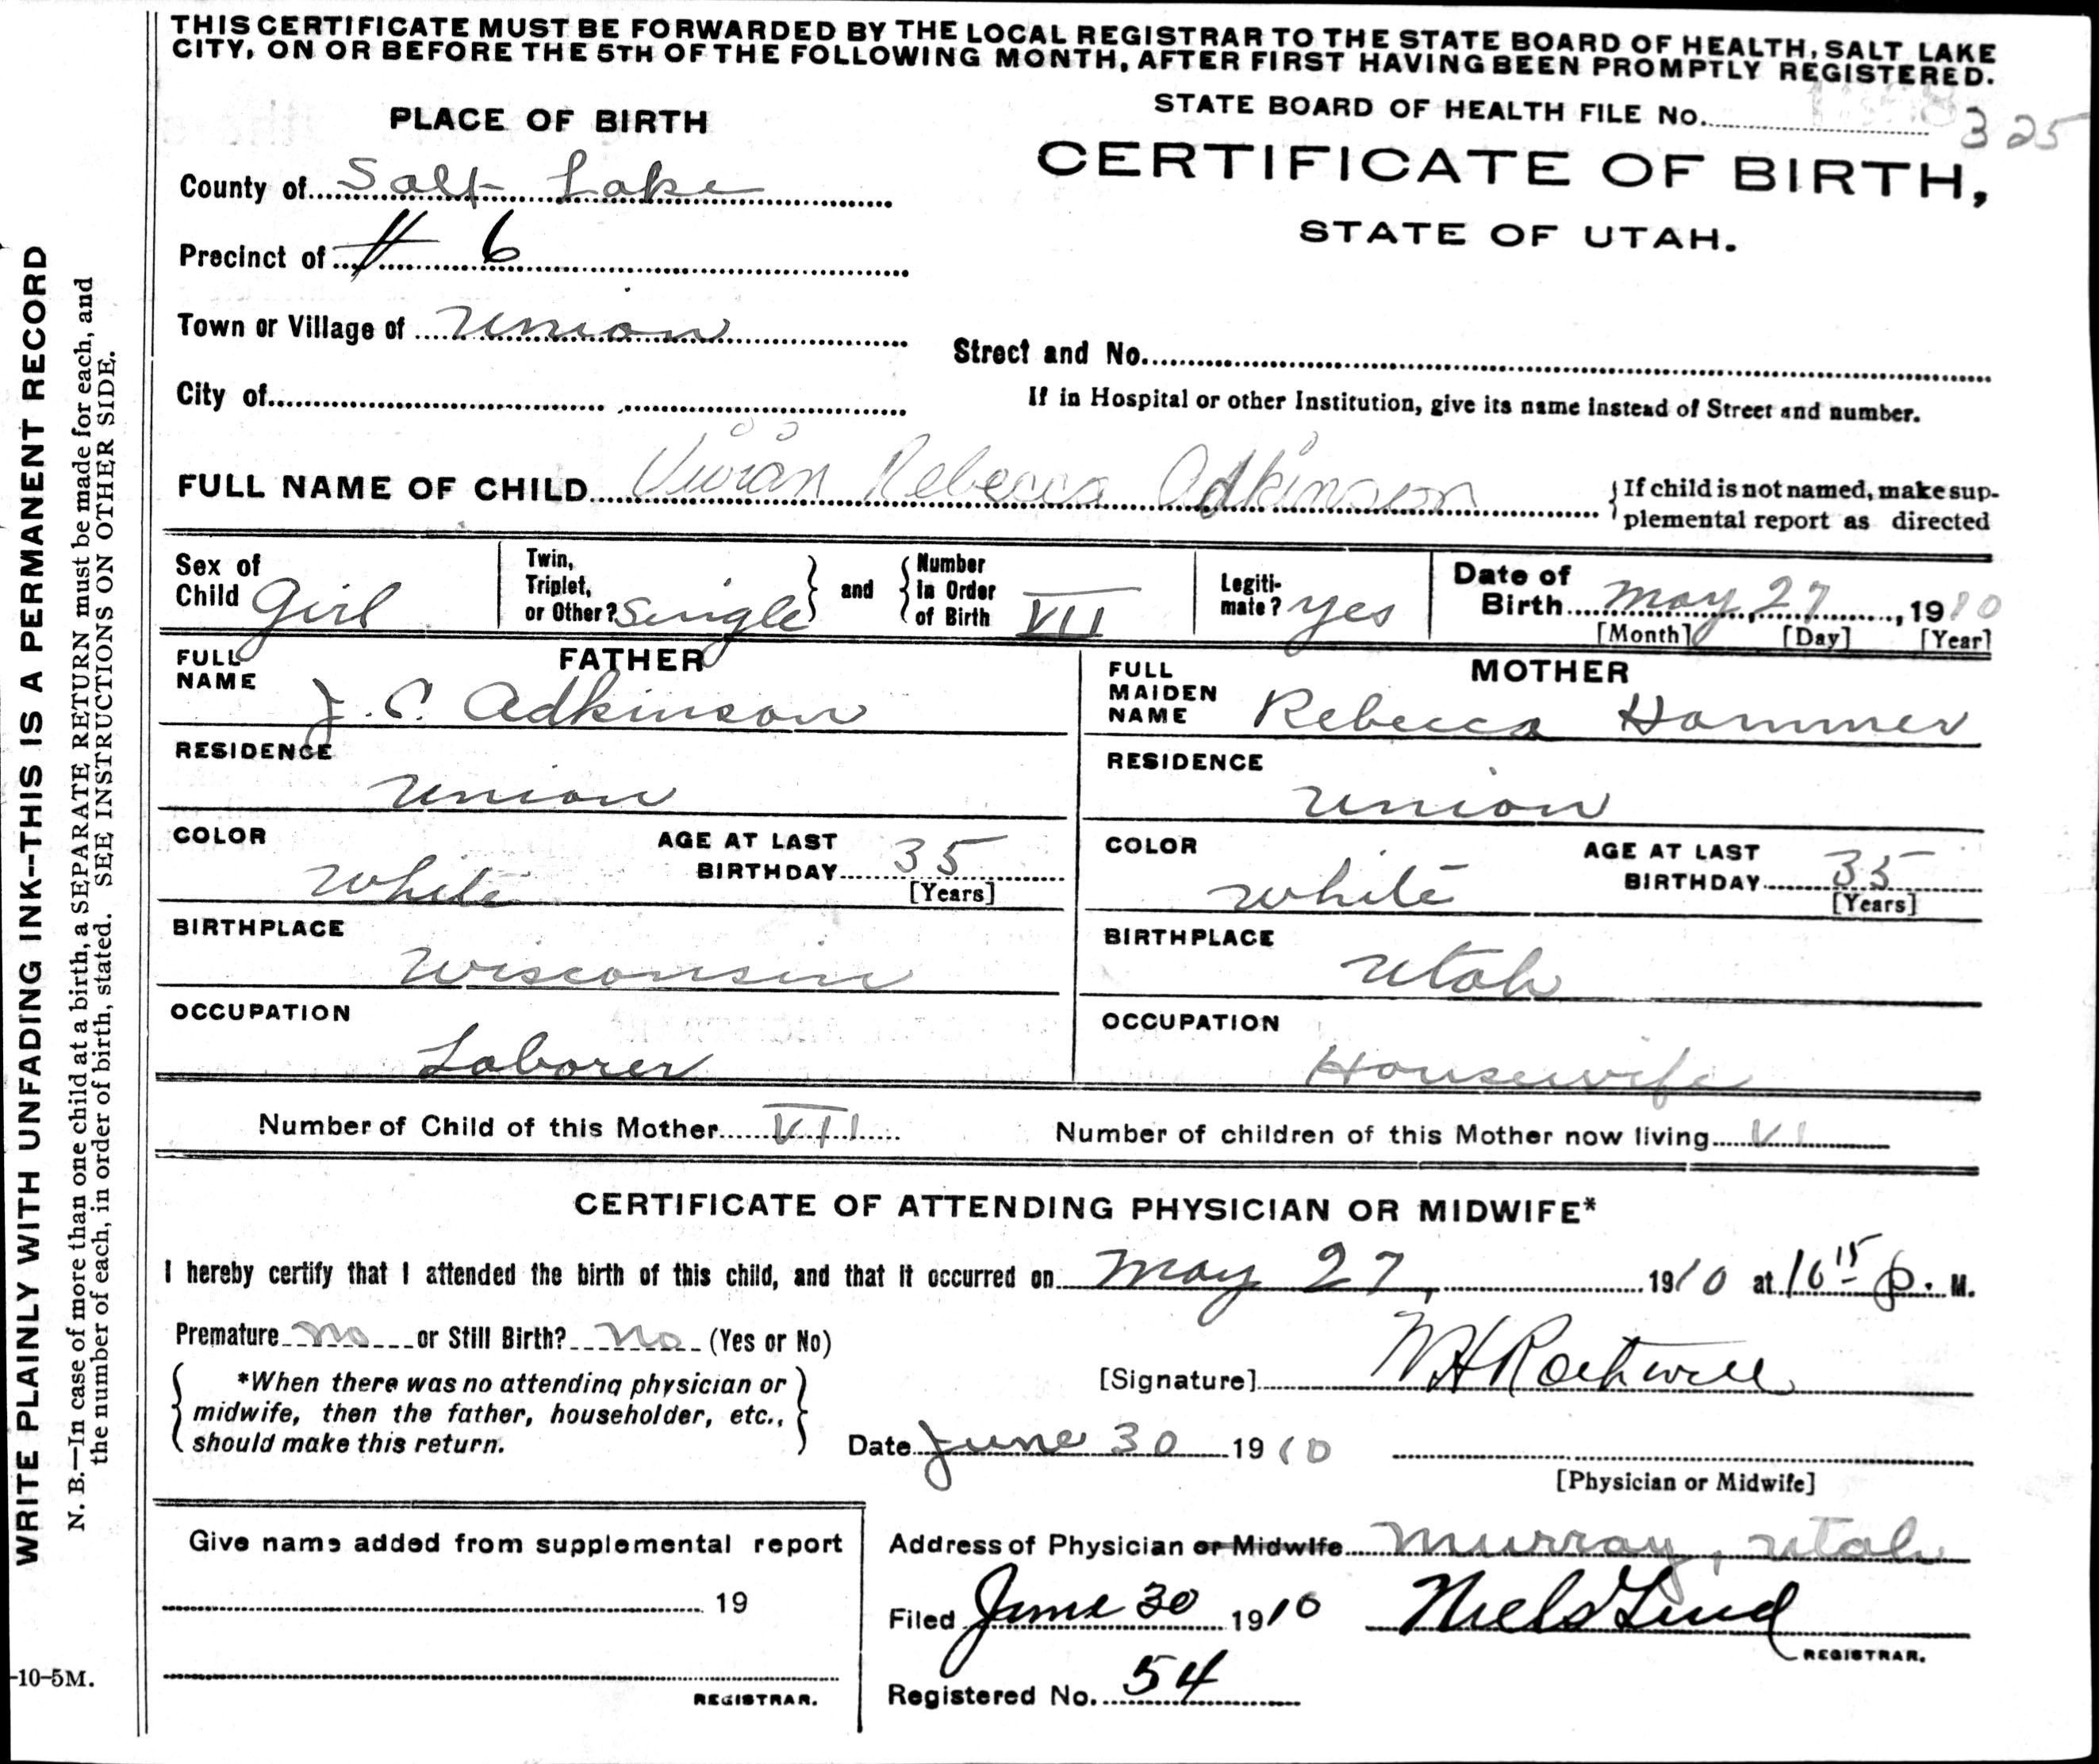 THIS CERTIFICATE MUST BE FORWARDED BY THE LOCAL REGISTRAR TO THE STATE BOARD OF HEALTH, SALT LAKE
CITY, ON OR BEFORE THE 5TH OF THE FOLLOWING MONTH, AFTER FIRST HAVING BEEN PROMPTLY REGISTERED.
STATE BOARD OF HEALTH FILE No. 325
PLACE OF BIRTH
CERTIFICATE OF BIRTH,
STATE OF UTAH.
County of Salt Lake
Precinct of # 6
Town or Village of Union
Street and No.
City of
If in Hospital or other Institution, give its name instead of Street and number.
FULL NAME OF CHILD Vivian Rebecca Adkinson
{If child is not named, make sup-
plemental report as directed
Sex of Child Girl
Twin, Triplet, or Other? Single} and {Number in Order of Birth VII
Legiti-mate? yes
Date of Birth May 27, 1910
[Month] [Day] [Year]
FATHER
FULL NAME J. C. Adkinson
RESIDENCE Union
COLOR White
AGE AT LAST BIRTHDAY 35 [Years]
BIRTHPLACE Wisconsin
OCCUPATION Laborer
MOTHER
FULL MAIDEN NAME Rebecca Hammer
RESIDENCE Union
COLOR White
AGE AT LAST BIRTHDAY 35 [Years]
BIRTHPLACE Utah
OCCUPATION Housewife
Number of Child of this Mother VII
Number of children of this Mother now living VI
CERTIFICATE OF ATTENDING PHYSICIAN OR MIDWIFE*
I hereby certify that I attended the birth of this child, and that it occurred on May 27, 1910 at 10 15 p. M.
Premature no or Still Birth? no (Yes or No)
[Signature] W H Rothwell
{*When there was no attending physician or
midwife, then the father, householder, etc.,
should make this return.}
Date June 30 1910
[Physician or Midwife]
Give name added from supplemental report
19
REGISTRAR.
Address of Physician or Midwife Murray, Utah
Filed June 30 1910 Niels Lind
REGISTRAR.
Registered No. 54
WRITE PLAINLY WITH UNFADING INK--THIS IS A PERMANENT RECORD
N. B.—In case of more than one child at a birth, a SEPARATE RETURN must be made for each, and
the number of each, in order of birth, stated. SEE INSTRUCTIONS ON OTHER SIDE.
-10-5M.